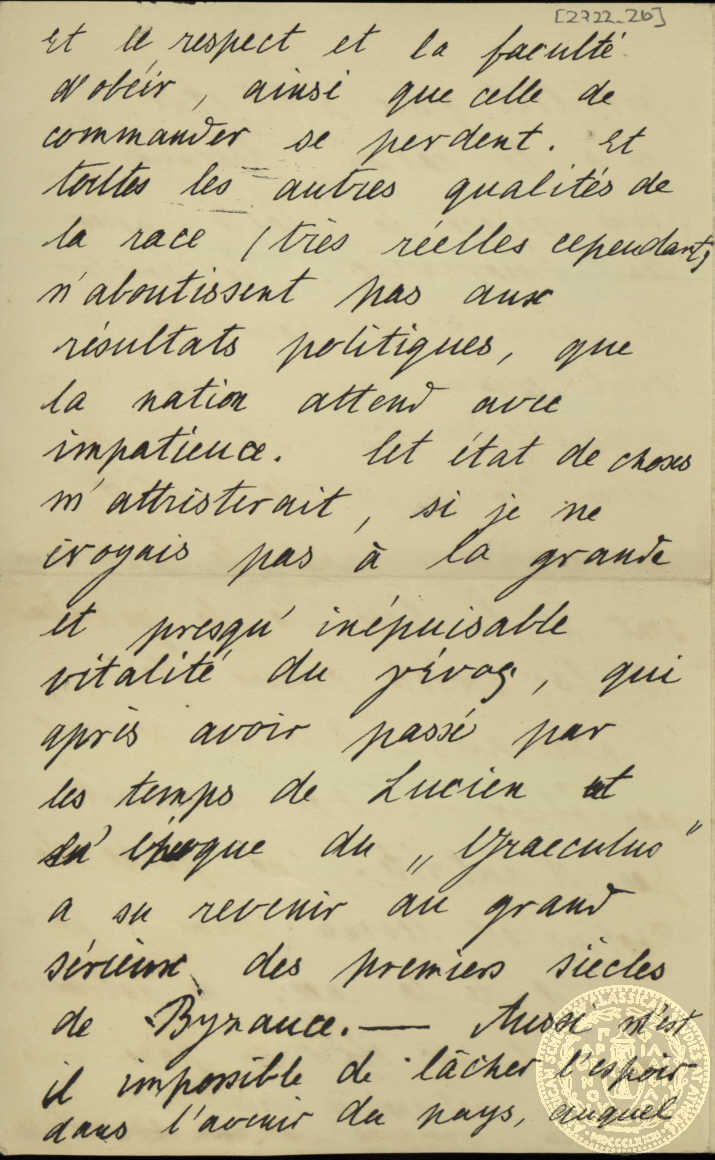 [2722-26]
Et le respect et la faculté
d'obéir, ainsi que celle de
commander se perdent. Et
toutes les autres qualités de
la race (très réelles cependant)
n'aboutissent pas aux
résultats politiques, que
la nation attend avec
impatience. Cet état de choses
m'attristerait, si je ne
croyais pas à la grande
et presqu' inépuisable
vitalité du γένος, qui
après avoir passé par
les temps de Lucien et
l'époque du „Graeculus"
a su revenir au grand
sérieux des premiers siècles
de Byzance. — Aussi m'est
il impossible de lâcher l'espoir
dans l'avenir du pays, auquel